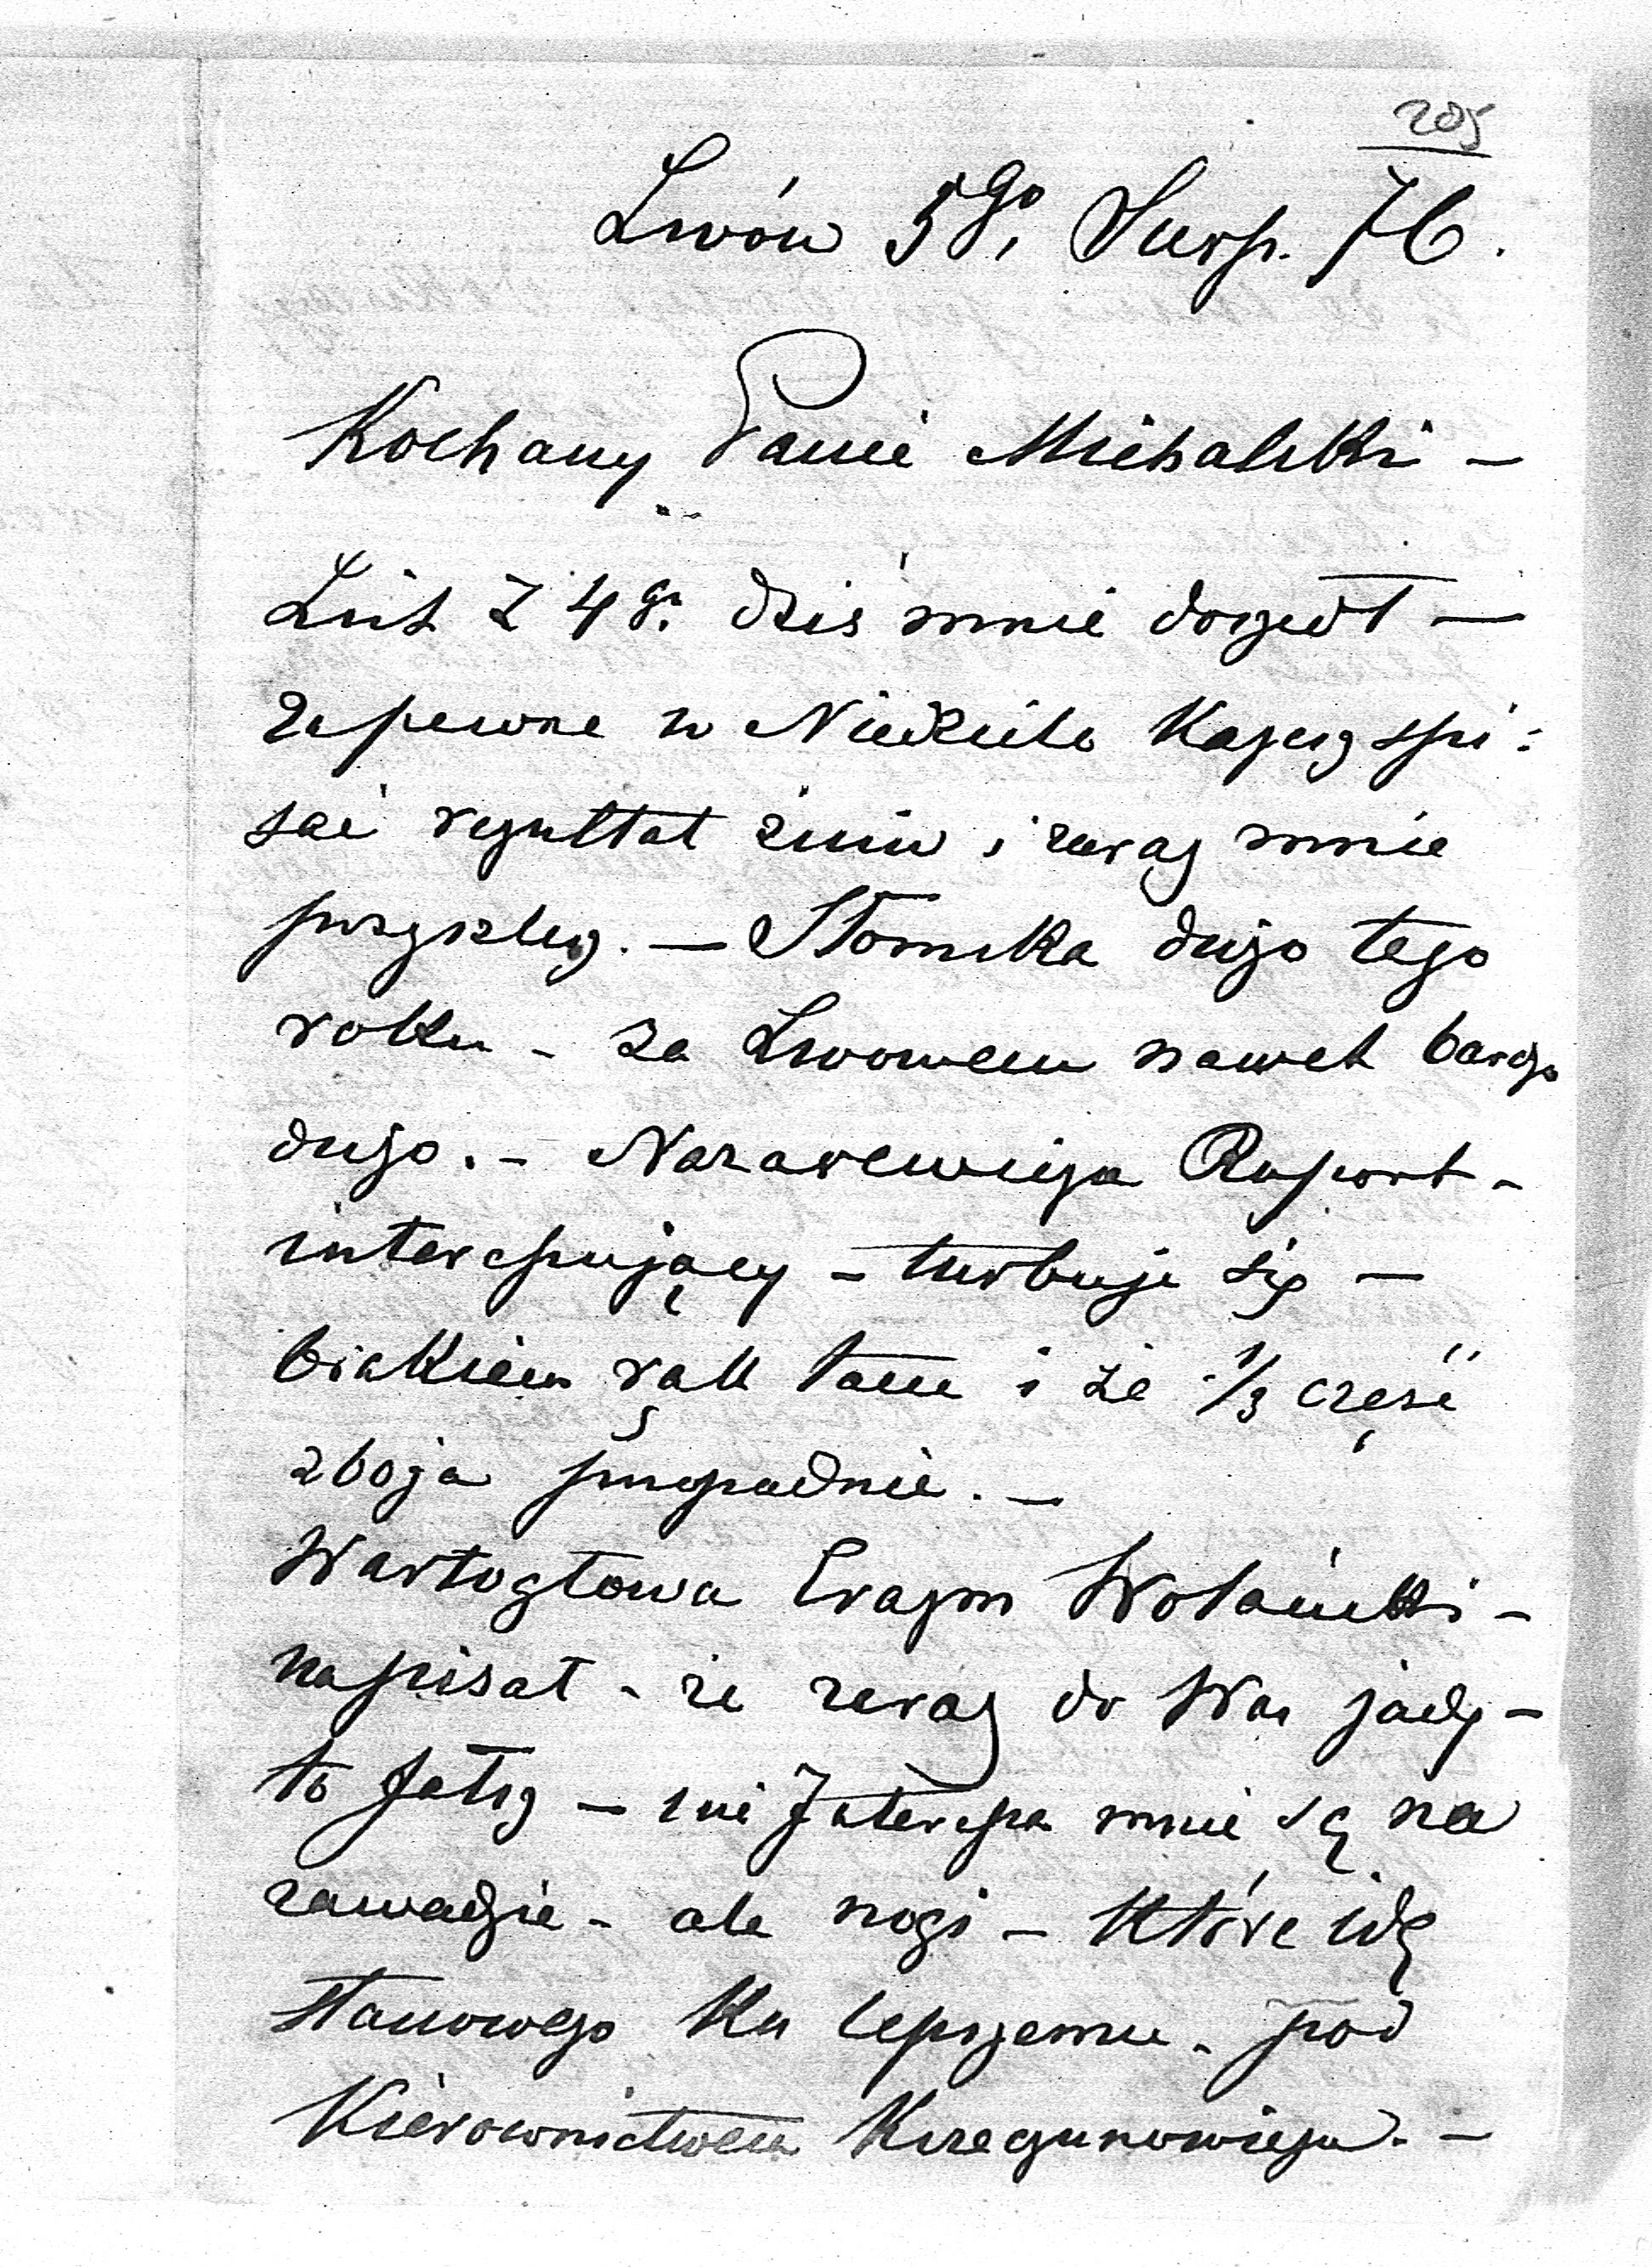 205
Lwów 5go Sierp. 76.
Kochany Panie Michalski –
List z 4go dziś mnie doszedł —
zapewne w Niedziele każesz spi:
sać rezultat żniw i zaraz mnie
przyszlesz. — Słomka dużo tego
roku – za Lwowem nawet bardzo
dużo. – Nazarewicza Raport –
interesujący – turbuje się —
brakiem rąk tam i że 1/3 część
zboża przepadnie. —
Wartogłowa Erazm Wolański –
napisał – że zaraz do Was jadę –
to fałsz — nie Interesa mnie są na
zawadzie – ale nogi – które idą
stanowczo ku lepszemu – pod
Kierownictwem –